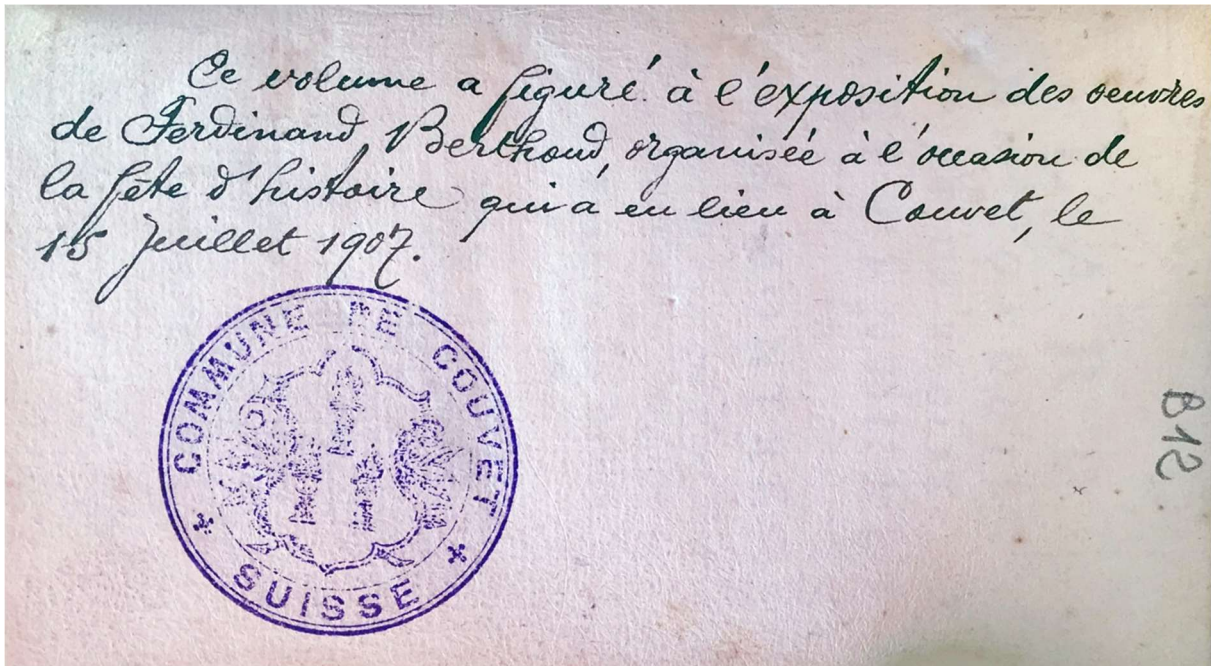 Ce volume a figuré à l'exposition des oeuvres
de Ferdinand Berthoud, organisée à l'occasion de
la fête d'histoire qui a eu lieu à Couvet, le
15 Juillet 1907.
COMMUNE DE COUVET
SUISSE
B12